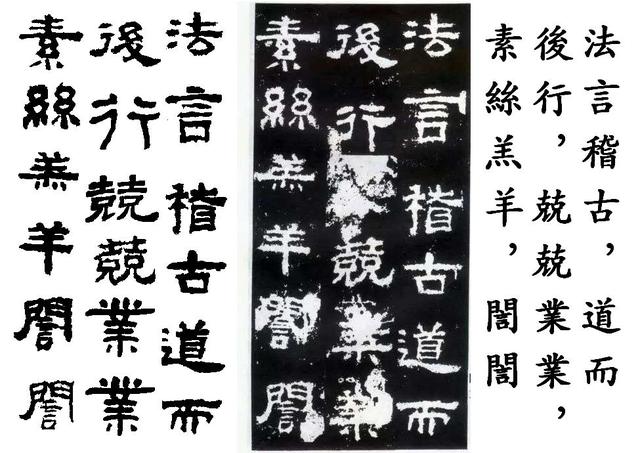 法言稽古，道而
後行，兢兢業業，
素絲羔羊，誾誾
法言稽古道而
後行兢業業
素絲羔羊誾誾
法言稽古道而
後行兢兢業業
素絲羔羊誾誾